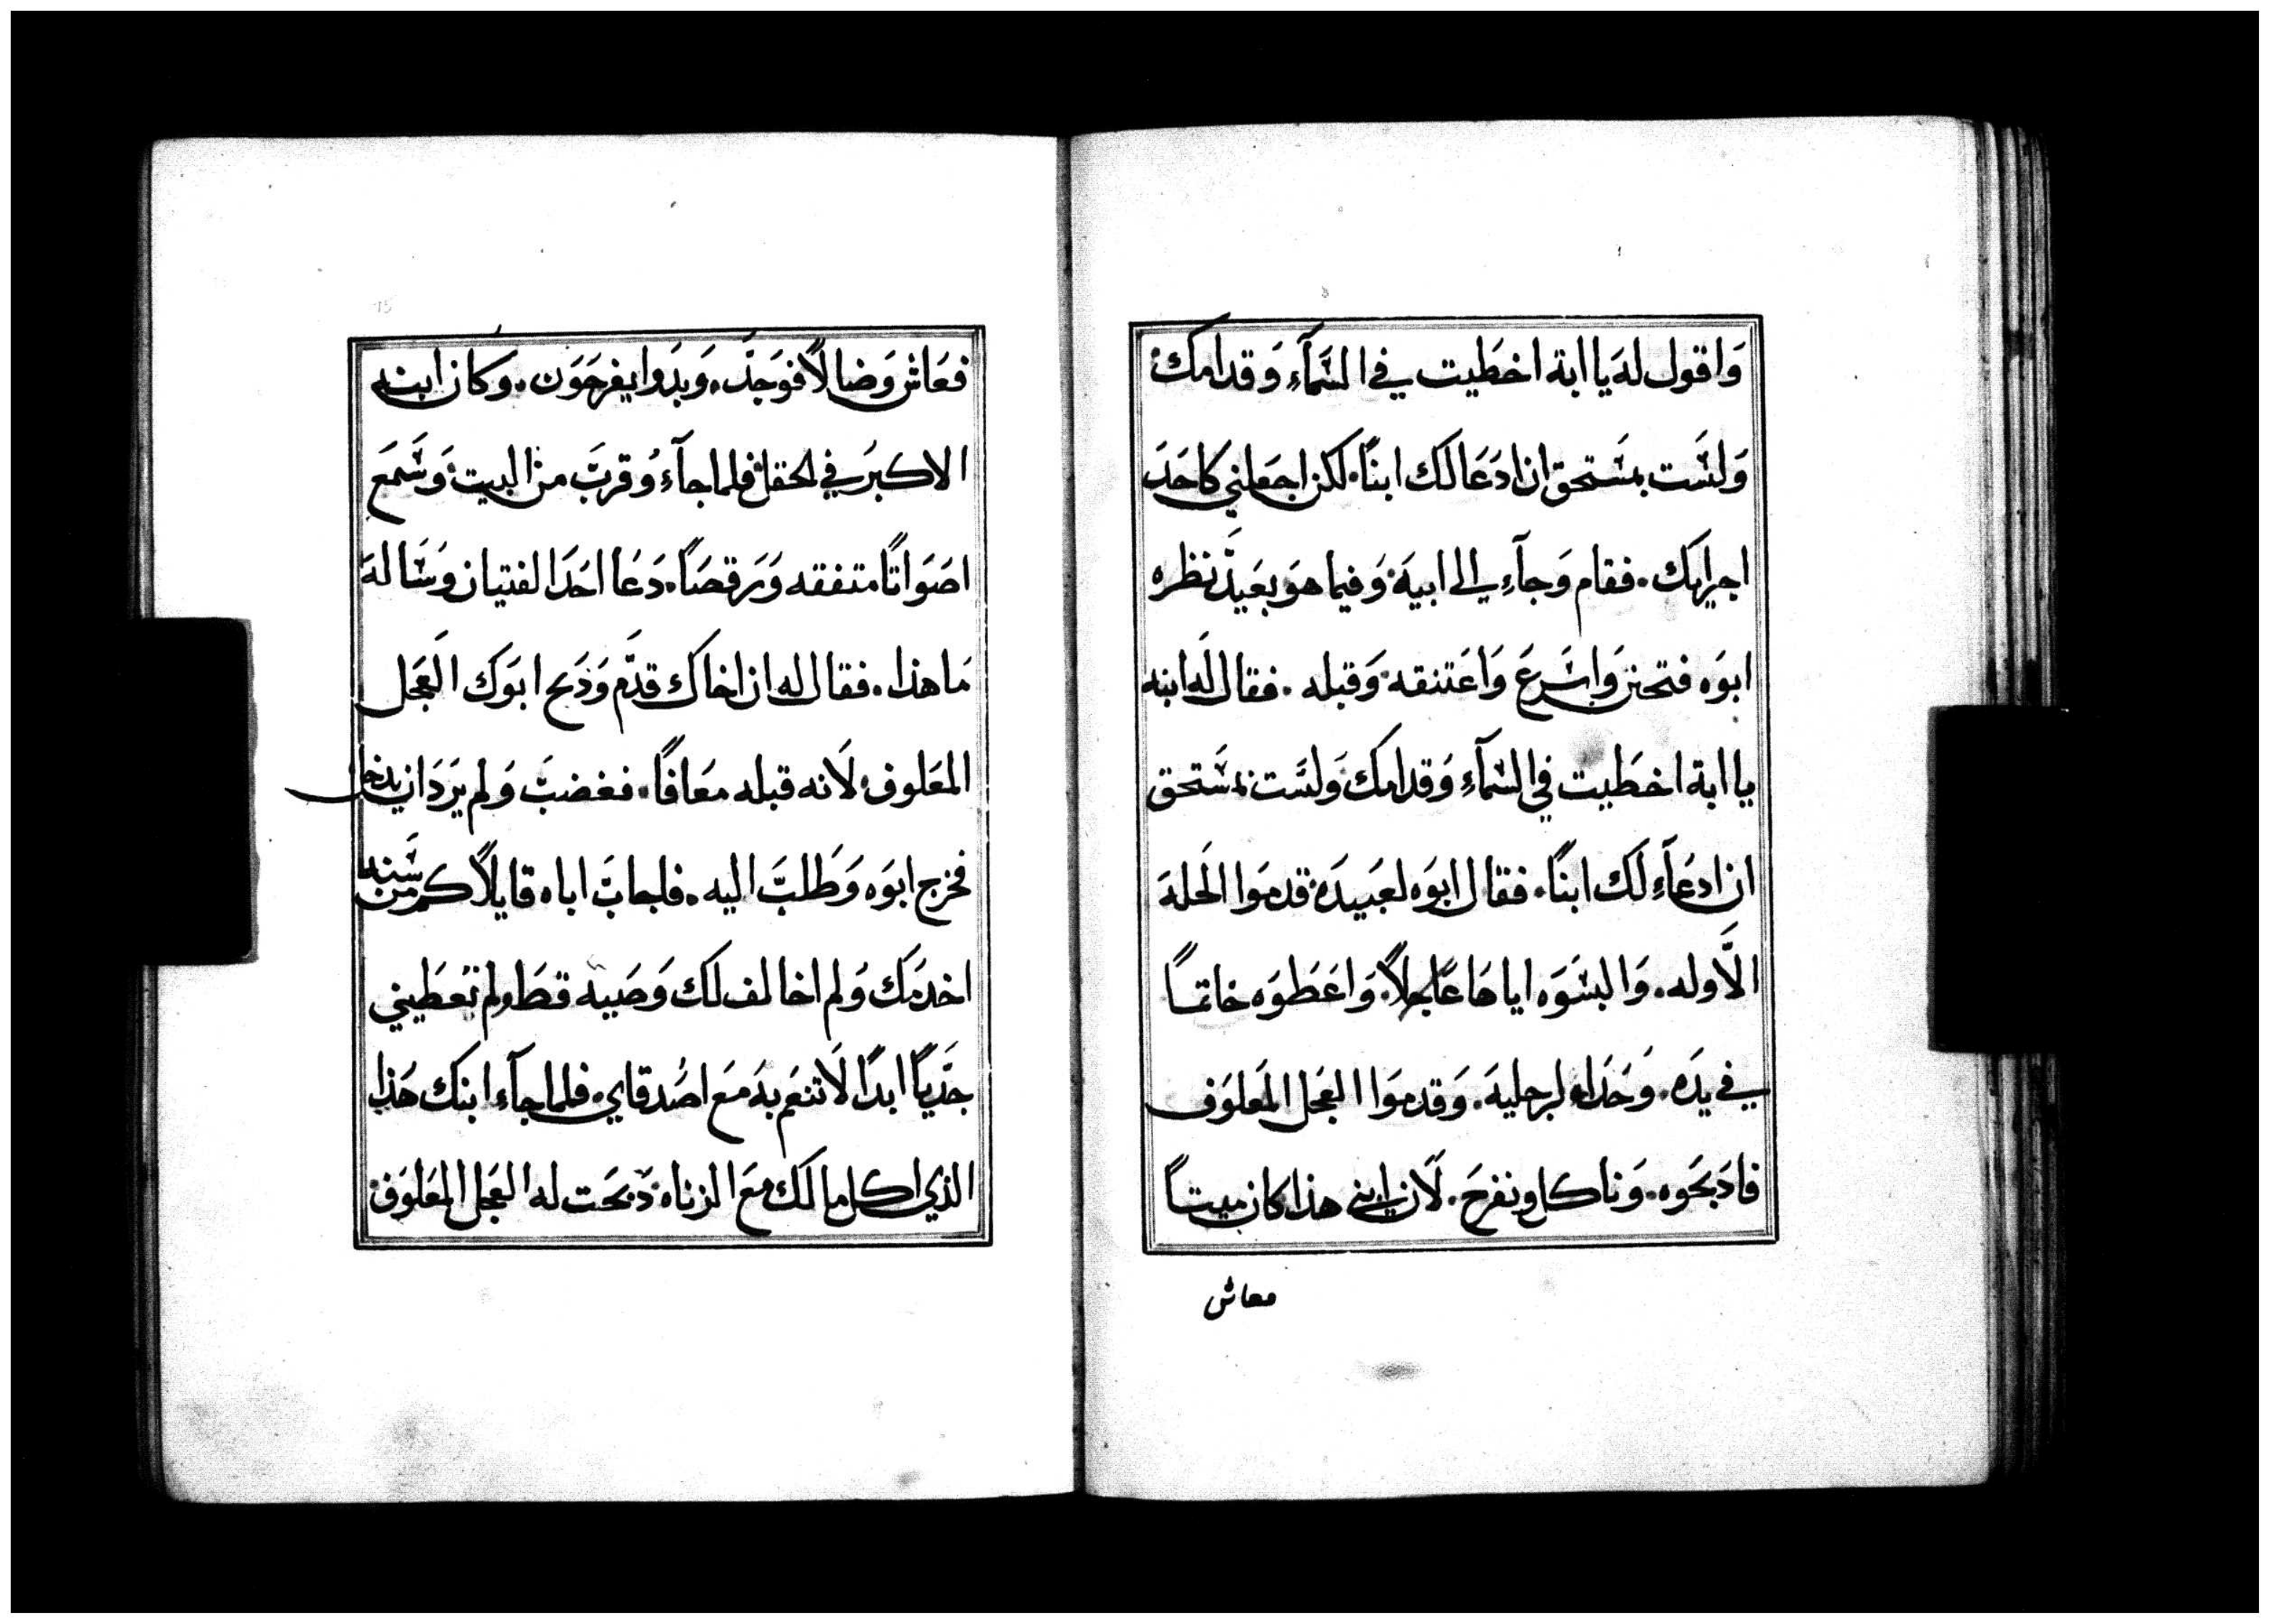 وَاقول لهَ يا ابة اخطَيت في السَّمآءِ وَقدامكَ
وَلسَّت بمسَّتحق ان ادعَا لكَ ابنًا. لكن اجعَلني كاحَدَ
اجرايكَ. فقام وَجآءِ الى ابيهَ. وَفيما هوَ بعَيدٌ نظره
ابوَه فتحنن وَاسَّرعَ وَاعَتنقه وَقبله. فقال لهَ ابنه
يا ابة اخطَيت في السَّمآءِ وَقدامكَ وَلسَّت بمسَّتحق
ان ادعَآءِ لكَ ابنًا. فقال ابوَه لعَبيدَه قدموَا الحَلهَ
الاَّوله. وَالبسَّوَه اياهَا عَاجلاً. وَاعَطوَه خاتمًا
في يدَه. وَحَدَاءِ لرجليهَ. وَقدموَا العَجل المَعلوَف
فادَبحَوه. وَناكل ونفرحَ. لاَن ابني هذا كان ميتاً
معاش
فعَاش وَضالاً فوَجدَّ. وَبدَوا يفرحَوَن. وَكان ابنه
الاكبرَ في الحَقل فلما جآءِ وُقربَّ من البيت وَسَّمعَ
اصَوَاتًا متفقه وَرَقصَاً. دَعَا احَدَ الفتيان وَسَّالهَ
مَا هذا. فقال له ان اخاكَ قدَّم وَدَبح ابوَكَ العَجَل
المعَلوف لاَنه قبله معَافًا. فغضبَّ وَلم يرَدَ ان يدَخل
فخرَج ابوَه وَطَلبَّ اليه. فاجابَّ اباه قايلاً كم من سَّنه
اخدمَكَ وَلم اخالف لكَ وَصَيه قطَ ولم تعَطَيني
جَدَّياً ابدًا لاَتنعَم بهَ مَعَ اصُدقاي. فلما جآءِ ابنكَ هَذا
الذي اكل مالكَ مَعَ الزناه دَبحَت له العَجَل المعَلوَف